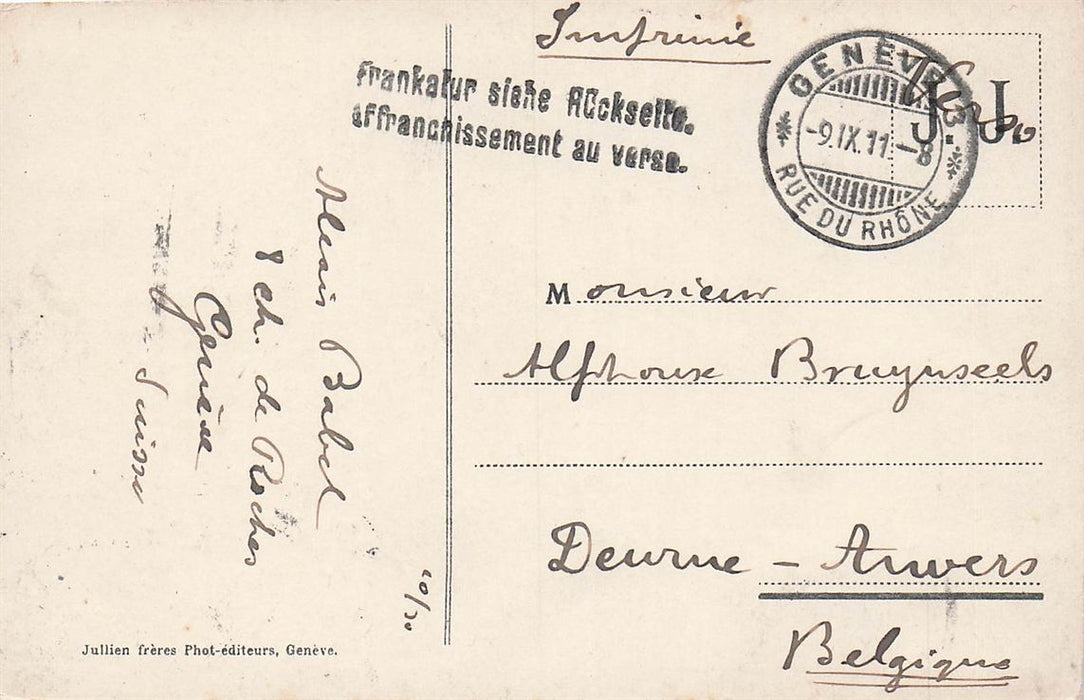 Imprimé
Frankatur siehe Rückseite.
Affranchissement au verso.
GENÈVE 3
-9.IX.11.-8
RUE DU RHÔNE
J. J.
Verso
Monsieur
Alphonse Bruynseels
Deurne - Anvers
Belgique
Alexis Babel
8 ch. de Roches
Genève
Suisse
Jullien frères Phot-éditeurs, Genève.